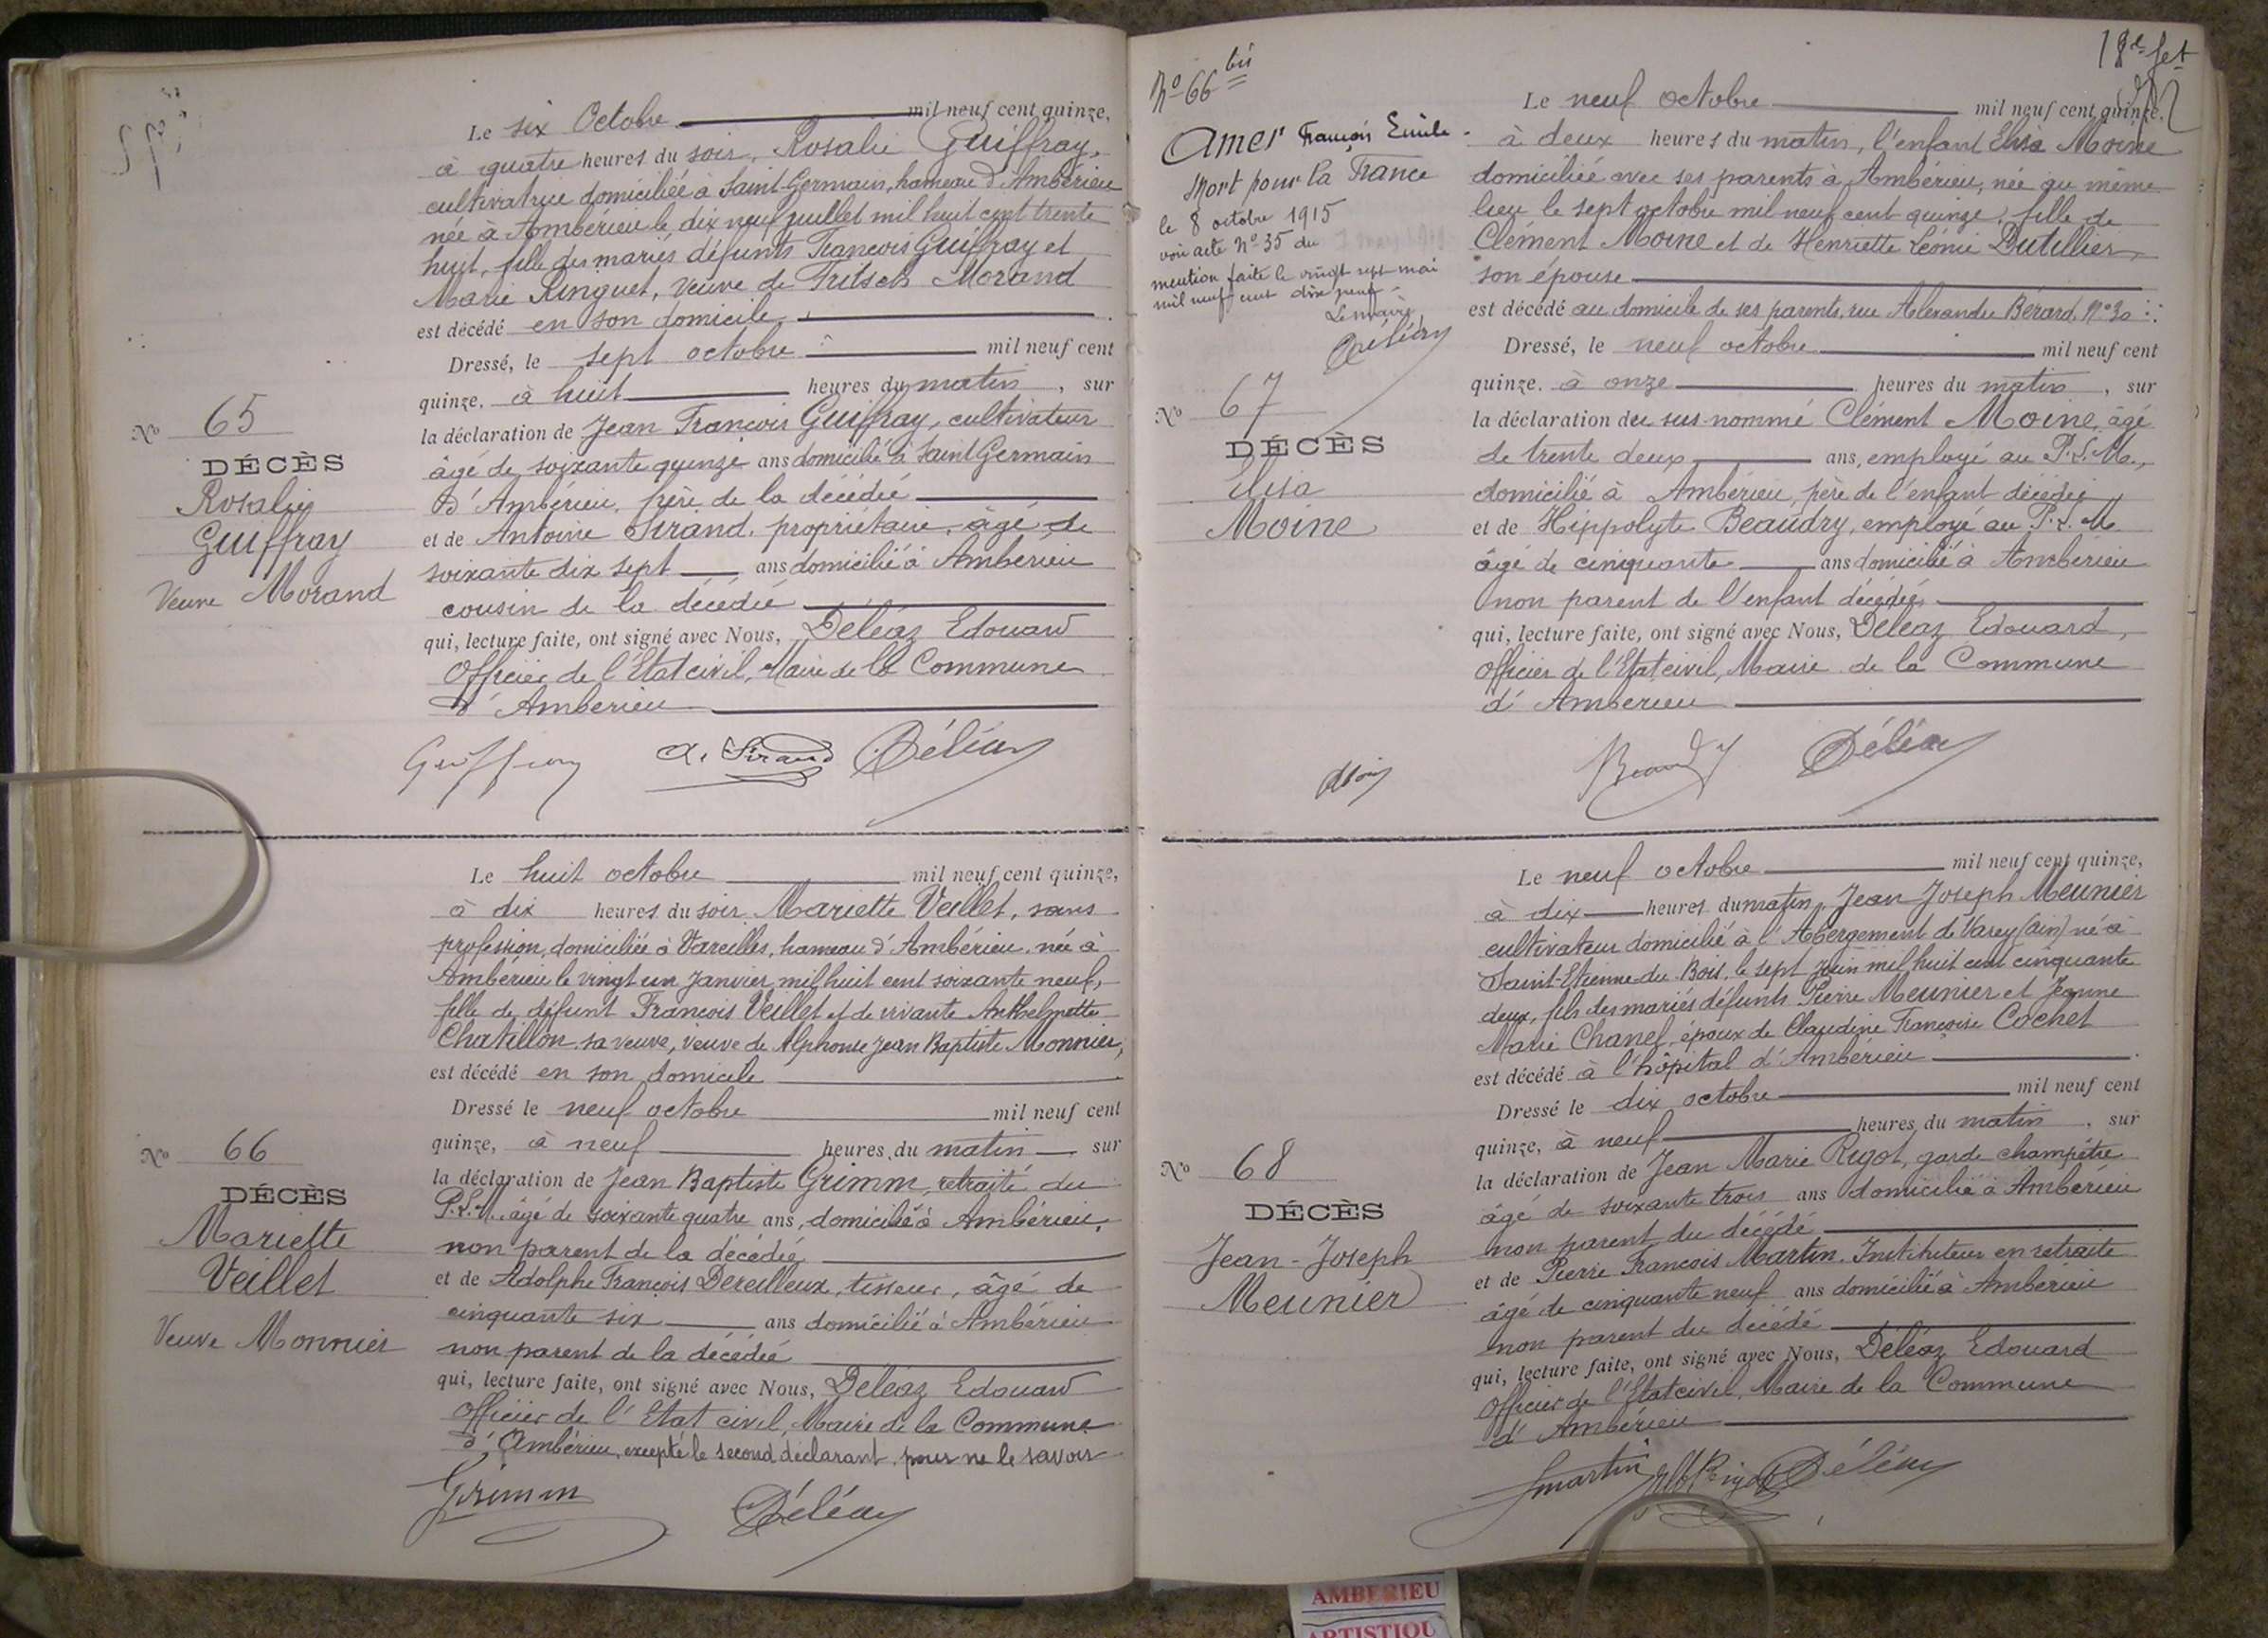 Le six Octobre mil neuf cent quinze,
à quatre heures du soir, Rosalie Guiffray,
cultivatrice domiciliée à Saint-Germain, hameau d'Ambérieu
née à Ambérieu le dix neuf juillet mil huit cent trente
huit, fille des mariés défunts François Guiffray et
Marie Ringuet, veuve de Morand
est décédé en son domicile
Dressé, le sept octobre mil neuf cent
quinze, à huit heures du matin, sur
la déclaration de Jean François Guiffray, cultivateur
âgé de soixante quinze ans domicilié à Saint Germain
d'Ambérieu, père de la décédée
et de Antoine Sirand, propriétaire, âgé de
soixante dix sept ans domicilié à Ambérieu
cousin de la décédée
qui, lecture faite, ont signé avec Nous, Déléaz Edouard
Officier de l'Etat civil, Maire de la Commune
d'Ambérieu
Guiffray A. Sirand Déléaz
No 65
DÉCÈS
Rosalie
Guiffray
Veuve Morand
Le huit octobre mil neuf cent quinze,
à dix heures du soir Mariette Veillet, sans
profession, domiciliée à Vareilles, hameau d'Ambérieu, née à
Ambérieu le vingt un janvier mil huit cent soixante neuf,
fille de défunt François Veillet et de vivante Anthelmette
Chatillon sa veuve, veuve de Alphonse Jean Baptiste Monnier,
est décédé en son domicile
Dressé le neuf octobre mil neuf cent
quinze, à neuf heures du matin sur
la déclaration de Jean Baptiste Grimm, retraité du
P.L.M. âgé de soixante quatre ans, domicilié à Ambérieu,
non parent de la décédée
et de Adolphe François Dereilleux, tisseur, âgé de
cinquante six ans domicilié à Ambérieu
non parent de la décédée
qui, lecture faite, ont signé avec Nous, Déléaz Edouard
Officier de l'Etat civil, Maire de la Commune
d'Ambérieu, excepté le second déclarant pour ne le savoir
Grimm Déléaz
No 66
DÉCÈS
Mariette
Veillet
Veuve Monnier
No 66 bis
Amer François Emile.
Mort pour la France
le 8 octobre 1915
voir acte No 35 du
mention faite le vingt sept mai
mil neuf cent dix neuf
Le maire,
Déléaz
18e fet
Le neuf octobre mil neuf cent quinze,
à deux heures du matin, l'enfant Elisa Moine
domiciliée avec ses parents à Ambérieu, née au même
lieu le sept octobre mil neuf cent quinze, fille de
Clément Moine et de Henriette Léonie Dutillier,
son épouse
est décédé au domicile de ses parents, rue Alexandre Bérard, No 30
Dressé, le neuf octobre mil neuf cent
quinze, à onze heures du matin, sur
la déclaration du sus-nommé Clément Moine, âgé
de trente deux ans, employé au P.L.M.,
domicilié à Ambérieu, père de l'enfant décédée
et de Hippolyte Beaudry, employé au P.L.M.
âgé de cinquante ans domicilié à Ambérieu
non parent de l'enfant décédée
qui, lecture faite, ont signé avec Nous, Déléaz Edouard,
Officier de l'Etat civil, Maire de la Commune
d'Ambérieu
Moine Beaudry Déléaz
No 67
DÉCÈS
Elisa
Moine
Le neuf octobre mil neuf cent quinze,
à dix heures du matin, Jean Joseph Meunier
cultivateur domicilié à l'Abergement de Varey (Ain) né à
Saint-Etienne-du-Bois, le sept juin mil huit cent cinquante
deux, fils des mariés défunts Pierre Meunier et Jeanne
Marie Chanel, époux de Claudine Françoise Cochet
est décédé à l'hôpital d'Ambérieu
Dressé le dix octobre mil neuf cent
quinze, à neuf heures du matin, sur
la déclaration de Jean Marie Rigot, garde champêtre
âgé de soixante trois ans domicilié à Ambérieu
non parent du décédé
et de Pierre François Martin, Instituteur en retraite
âgé de cinquante neuf ans domicilié à Ambérieu
non parent du décédé
qui, lecture faite, ont signé avec Nous, Déléaz Edouard
Officier de l'Etat civil, Maire de la Commune
d'Ambérieu
Martin Rigot Déléaz
No 68
DÉCÈS
Jean-Joseph
Meunier
AMBERIEU
ARTISTIQU